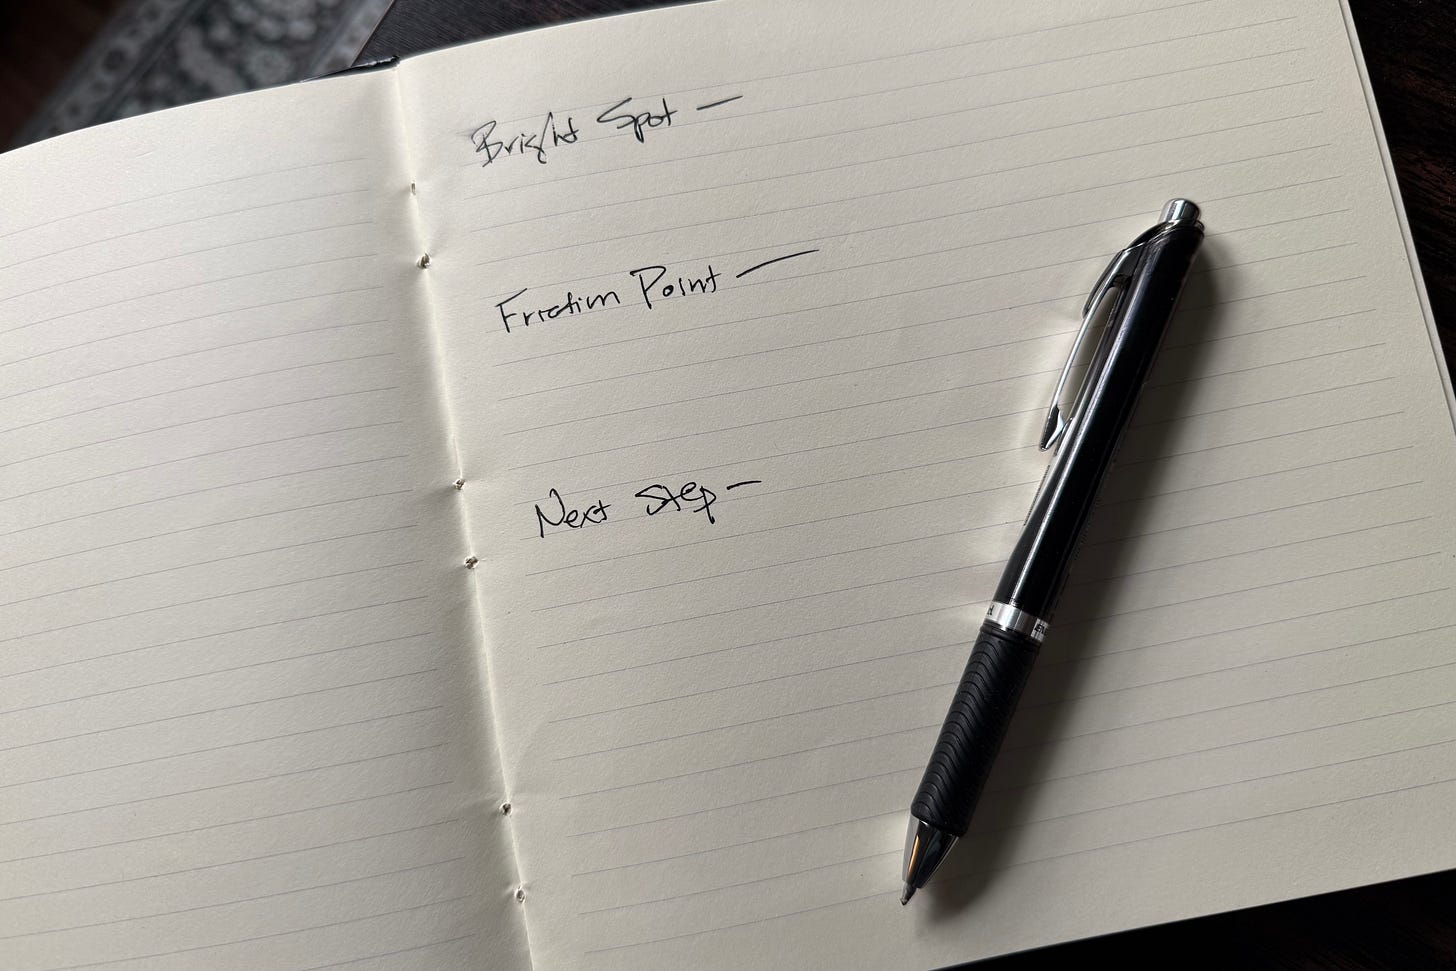 Bright Spot —
Friction Point —
Next Step -